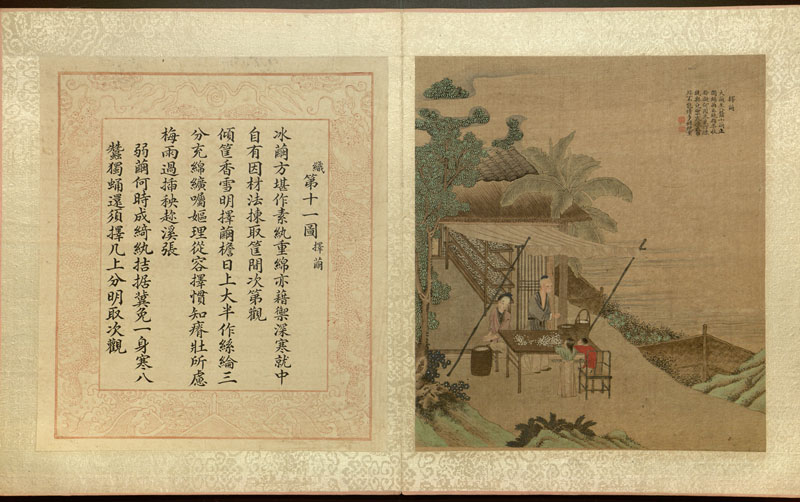 織第十一圖擇繭
冰繭方堪作素紈重綿亦藉禦深寒就中
自有因材法揀取筐間次第觀
傾筐香雪明擇繭檐日上大半作絲綸三
分充綿纊囑嫗理從容擇慣知瘠壯所慮
梅雨過插秧趁溪張
弱繭何時成綺紈拮据冀免一身寒八
蠶獨蛹還須擇几上分明取次觀
擇繭